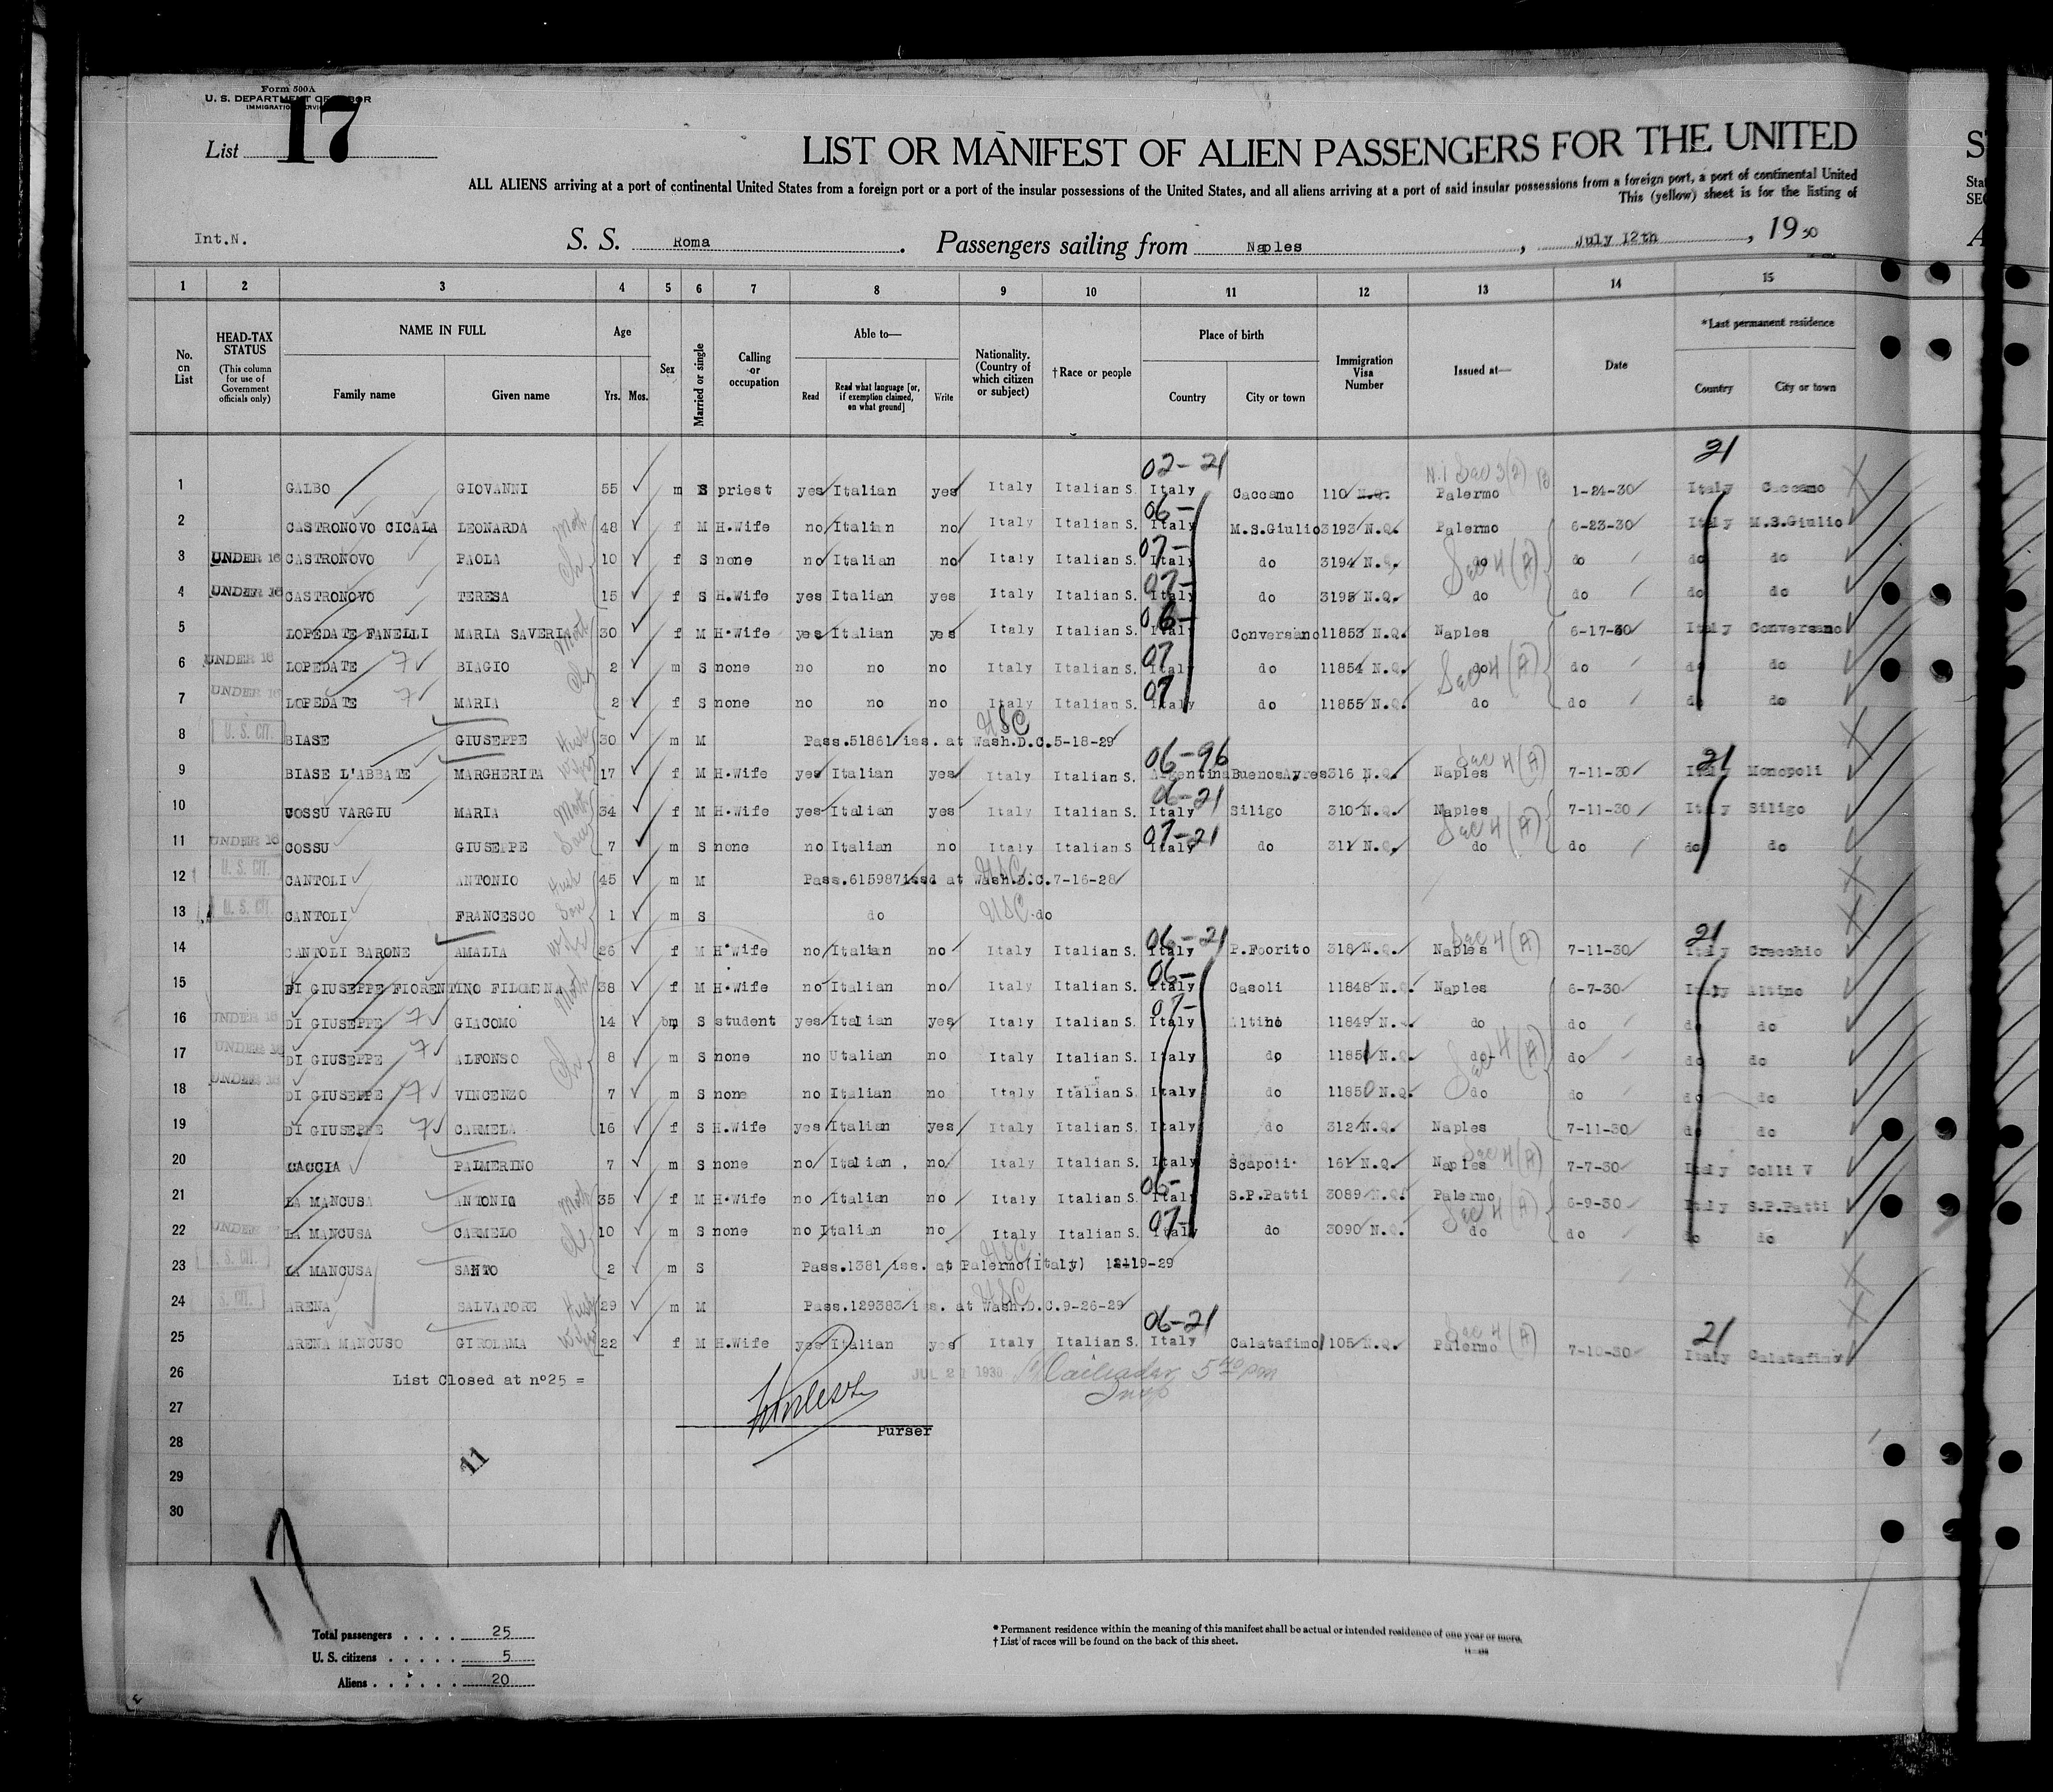 Form 500A
U. S. DEPARTMENT OF LABOR
IMMIGRATION SERVICE
List 17
LIST OR MANIFEST OF ALIEN PASSENGERS FOR THE UNITED
ALL ALIENS arriving at a port of continental United States from a foreign port or a port of the insular possessions of the United States, and all aliens arriving at a port of said insular possessions from a foreign port, a port of continental United
This (yellow) sheet is for the listing of
Int.N. S. S. Roma. Passengers sailing from Naples, July 12th, 1930
1 2 3 4 5 6 7 8 9 10 11 12 13 14 15
No. on List
HEAD-TAX STATUS (This column for use of Government officials only)
NAME IN FULL Family name Given name
Age Yrs. Mos.
Sex
Married or single
Calling or occupation
Able to— Read Read what language [or, if exemption claimed, on what ground] Write
Nationality. (Country of which citizen or subject)
†Race or people
Place of birth Country City or town
Immigration Visa Number
Issued at—
Date
*Last permanent residence Country City or town
02-21 21
1 GALBO GIOVANNI 55 m S priest yes Italian yes Italy Italian S. Italy Caccamo 110 N.Q. Palermo 1-24-30 Italy Caccamo
2 CASTRONOVO CICALA LEONARDA 48 f M H.Wife no Italian no Italy Italian S. 06- Italy M.S.Giulio 3193 N.Q. Palermo 6-23-30 Italy M.S.Giulio
3 UNDER 16 CASTRONOVO PAOLA 10 f S none no Italian no Italy Italian S. 07- Italy do 3194 N.Q. do do do do
4 UNDER 16 CASTRONOVO TERESA 15 f S H.Wife yes Italian yes Italy Italian S. 07- Italy do 3195 N.Q. do do do do
5 LOPEDATE FANELLI MARIA SAVERIA 30 f M H.Wife yes Italian yes Italy Italian S. 06- Italy Conversano 11853 N.Q. Naples 6-17-30 Italy Conversano
6 UNDER 16 LOPEDATE 7 BIAGIO 2 m S none no no no Italy Italian S. 07 Italy do 11854 N.Q. do do do do
7 UNDER 16 LOPEDATE 7 MARIA 2 f S none no no no Italy Italian S. 07 Italy do 11855 N.Q. do do do do
8 U. S. CIT. BIASE GIUSEPPE 30 m M Pass.51861 iss. at Wash.D.C.5-18-29 USC
9 BIASE L'ABBATE MARGHERITA 17 f M H.Wife yes Italian yes Italy Italian S. 06-96 Argentina BuenosAyres 316 N.Q. Naples 7-11-30 21 Italy Monopoli
10 COSSU VARGIU MARIA 34 f M H.Wife yes Italian yes Italy Italian S. 06-21 Italy Siligo 310 N.Q. Naples 7-11-30 Italy Siligo
11 UNDER 16 COSSU GIUSEPPE 7 m S none no Italian no Italy Italian S 07-21 Italy do 311 N.Q. do do do do
12 U. S. CIT. CANTOLI ANTONIO 45 m M Pass.615987issd at Wash.D.C.7-16-28 USC
13 U. S. CIT. CANTOLI FRANCESCO 1 m S do USC do
14 CANTOLI BARONE AMALIA 26 f M H.Wife no Italian no Italy Italian S. 06-21 Italy P.Foorito 318 N.Q. Naples 7-11-30 21 Italy Crecchio
15 DI GIUSEPPE FIORENTINO FILOMENA 38 f M H.Wife no Italian no Italy Italian S. 06- Italy Casoli 11848 N.Q. Naples 6-7-30 Italy Altino
16 UNDER 16 DI GIUSEPPE 7 GIACOMO 14 m S student yes Italian yes Italy Italian S. 07- Italy Altino 11849 N.Q. do do do do
17 UNDER 16 DI GIUSEPPE 7 ALFONSO 8 m S none no Utalian no Italy Italian S. Italy do 11851 N.Q. do do do do
18 UNDER 16 DI GIUSEPPE 7 VINCENZO 7 m S none no Italian no Italy Italian S. Italy do 11850 N.Q. do do do do
19 DI GIUSEPPE 7 CARMELA 16 f S H.Wife yes Italian yes Italy Italian S. Italy do 312 N.Q. Naples 7-11-30 do do
20 CACCIA PALMERINO 7 m S none no Italian no Italy Italian S. Italy Scapoli 161 N.Q. Naples 7-7-30 Italy Colli V
21 LA MANCUSA ANTONIA 35 f M H.Wife no Italian no Italy Italian S. 06- Italy S.P.Patti 3089 N.Q. Palermo 6-9-30 Italy S.P.Patti
22 UNDER 16 LA MANCUSA CARMELO 10 m S none no Italian no Italy Italian S. 07- Italy do 3090 N.Q. do do do do
23 U. S. CIT. LA MANCUSA SANTO 2 m S Pass.1381 iss. at Palermo(Italy) USC
24 U. S. CIT. ARENA SALVATORE 29 m M Pass.129383 iss. at Wash.D.C.9-26-29 USC
25 ARENA MANCUSO GIROLAMA 22 f M H.Wife yes Italian yes Italy Italian S. 06-21 Italy Calatafimo 105 N.Q. Palermo 7-10-30 21 Italy Calatafimo
26 List Closed at nº25 = JUL 21 1930 5 40 pm
27
Purser
28
11
29
30
Total passengers 25
U. S. citizens 5
Aliens 20
* Permanent residence within the meaning of this manifest shall be actual or intended residence of one year or more.
† List of races will be found on the back of this sheet.